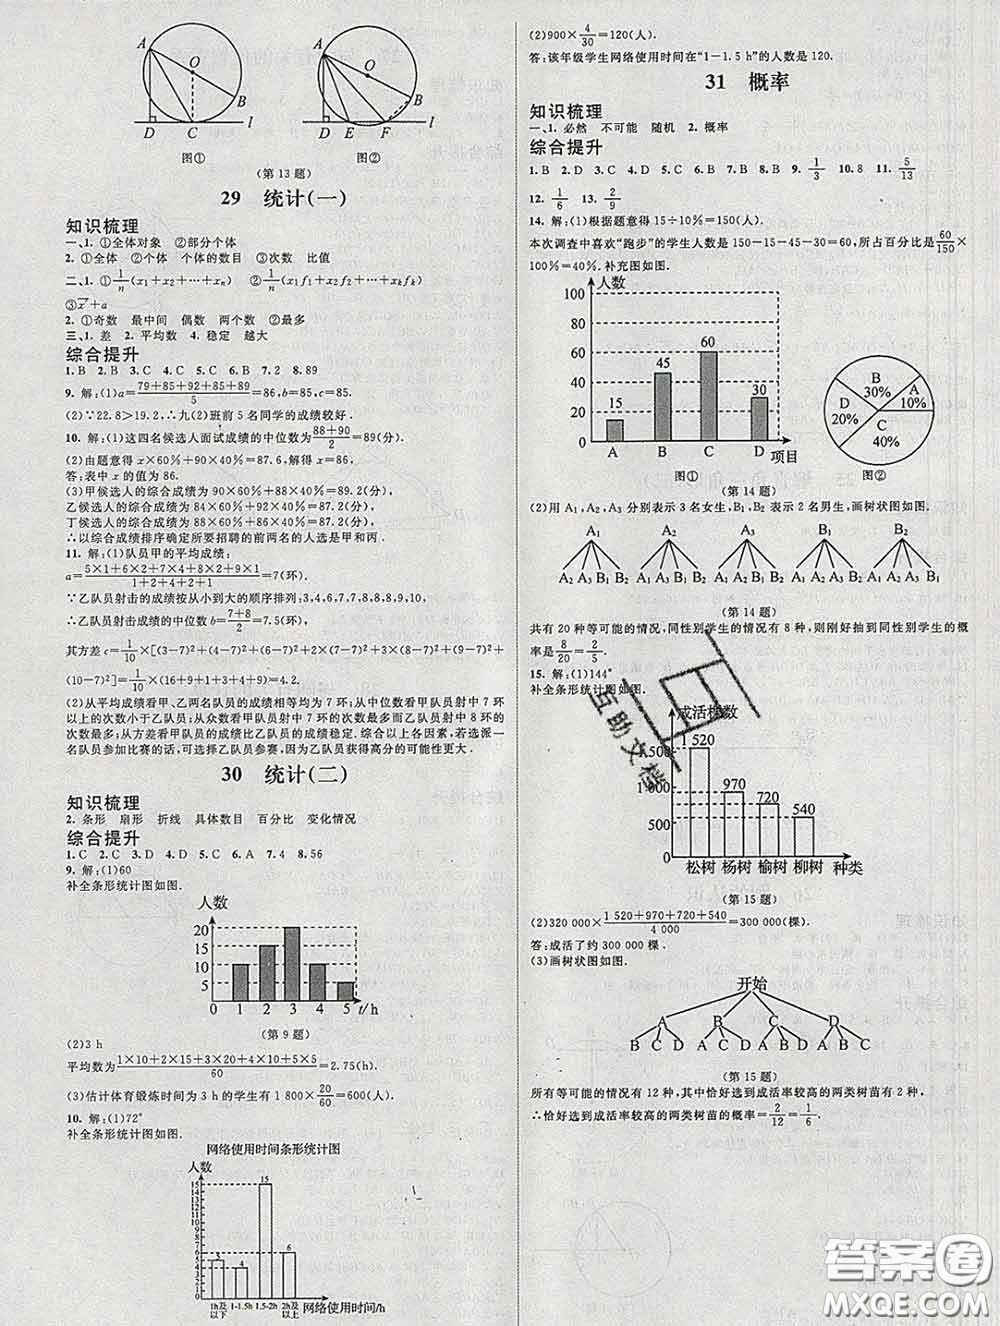 A
O
B
D
C
l
图①
A
O
B
D
E
F
l
图②
(第13题)
29 统计(一)
知识梳理
一、1. ①全体对象 ②部分个体
2. ①全体 ②个体 个体的数目 ③次数 比值
二、1. ①1/n(x₁+x₂+…+xₙ) ②1/n(x₁f₁+x₂f₂+…+xₖfₖ)
③x̄+a
2. ①奇数 最中间 偶数 两个数 ②最多
三、1. 差 2. 平均数 4. 稳定 越大
综合提升
1. B 2. B 3. C 4. C 5. D 6. B 7. 2 8. 89
9. 解:(1)a=(79+85+92+85+89)/5=86,b=85,c=85.
(2)∵22.8>19.2,∴九(2)班前5名同学的成绩较好.
10. 解:(1)这四名候选人面试成绩的中位数为(88+90)/2=89(分).
(2)由题意得x×60%+90×40%=87.6,解得x=86.
答:表中x的值为86.
(3)甲候选人的综合成绩为90×60%+88×40%=89.2(分),
乙候选人的综合成绩为84×60%+92×40%=87.2(分),
丁候选人的综合成绩为88×60%+86×40%=87.2(分),
∴以综合成绩排序确定所要招聘的前两名的人选是甲和丙.
11. 解:(1)队员甲的平均成绩:
a=(5×1+6×2+7×4+8×2+9×1)/(1+2+4+2+1)=7(环).
∵乙队员射击的成绩按从小到大的顺序排列:3,4,6,7,7,8,8,8,9,10,
∴乙队员射击成绩的中位数b=(7+8)/2=7.5(环),
其方差c=1/10×[(3−7)²+(4−7)²+(6−7)²+2×(7−7)²+3×(8−7)²+(9−7)²+
(10−7)²]=1/10×(16+9+1+3+4+9)=4.2.
(2)从平均成绩看甲、乙两名队员的成绩相等均为7环;从中位数看甲队员射中7环
以上的次数小于乙队员;从众数看甲队员射中7环的次数最多而乙队员射中8环的次
数最多;从方差看甲队员的成绩比乙队员的成绩稳定.综合以上各因素,若选派一
名队员参加比赛的话,可选择乙队员参赛,因为乙队员获得高分的可能性更大.
30 统计(二)
知识梳理
2. 条形 扇形 折线 具体数目 百分比 变化情况
综合提升
1. C 2. C 3. D 4. D 5. C 6. A 7. 4 8. 56
9. 解:(1)60
补全条形统计图如图.
人数
20
15
10
5
0 1 2 3 4 5 t/h
(第9题)
(2)3 h
平均数为(1×10+2×15+3×20+4×10+5×5)/60=2.75(h).
(3)估计体育锻炼时间为3 h的学生有1 800×20/60=600(人).
10. 解:(1)72°
补全条形统计图如图.
网络使用时间条形统计图
人数
5
4
15
6
1h及以下 1-1.5h 1.5-2h 2h及以上 网络使用时间/h
(2)900×4/30=120(人).
答:该年级学生网络使用时间在“1−1.5 h”的人数是120.
31 概率
知识梳理
一、1. 必然 不可能 随机 2. 概率
综合提升
1. B 2. D 3. C 4. D 5. C 6. D 7. B 8. D 9. 1/3 10. 8 11. 5/13
12. 1/6 13. 2/9
14. 解:(1)根据题意得15÷10%=150(人).
本次调查中喜欢“跑步”的学生人数是150−15−45−30=60,所占百分比是60/150×
100%=40%.补充图如图.
人数
100
80
60
40
20
0
15
45
60
30
A B C D 项目
图①
B 30%
A 10%
D 20%
C 40%
图②
(第14题)
(2)用A₁,A₂,A₃分别表示3名女生,B₁,B₂表示2名男生,画树状图如图.
A₁ A₂ A₃ B₁ B₂
A₂ A₃ B₁ B₂ A₁ A₃ B₁ B₂ A₁ A₂ B₁ B₂ A₁ A₂ A₃ B₂ A₁ A₂ A₃ B₁
(第14题)
共有20种等可能的情况,同性别学生的情况有8种,则刚好抽到同性别学生的概
率是8/20=2/5.
15. 解:(1)144°
补全条形统计图如图.
成活棵数
1 500
1 000
500
0
1 520
970
720
540
松树 杨树 榆树 柳树 种类
(第15题)
(2)320 000×(1 520+970+720+540)/4 000=300 000(棵).
答:成活了约300 000棵.
(3)画树状图如图.
开始
A B C D
B C D A C D A B D A B C
(第15题)
所有等可能的情况有12种,其中恰好选到成活率较高的两类树苗有2种,
∴恰好选到成活率较高的两类树苗的概率=2/12=1/6.
互助文档
答案圈
MXQE.COM